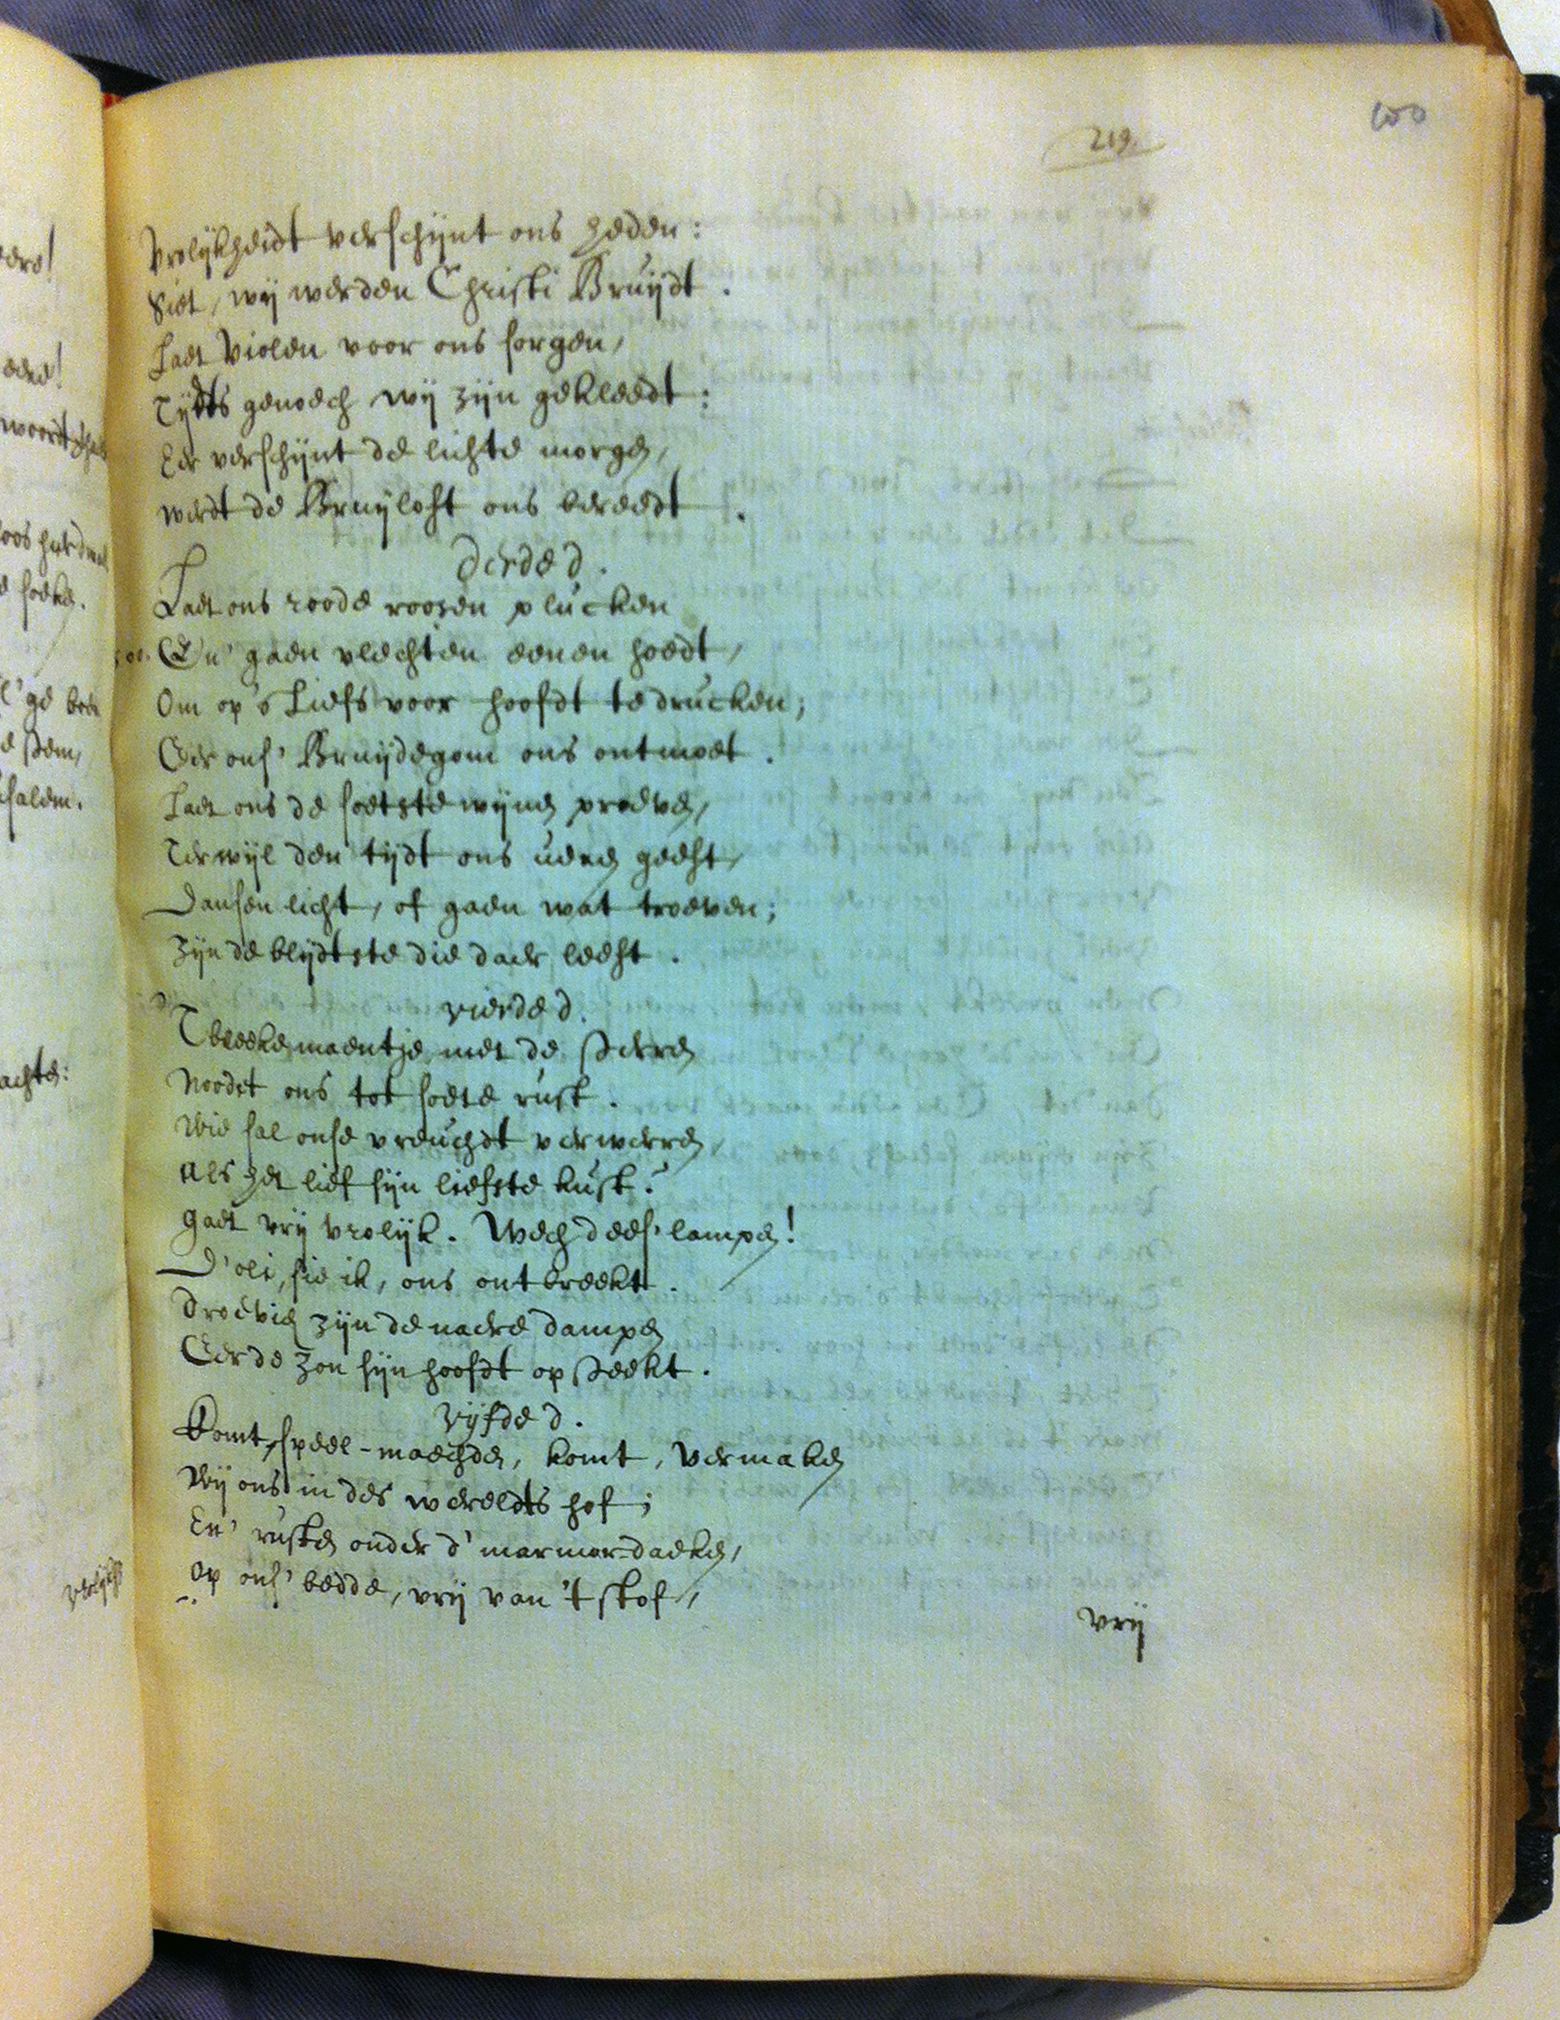 100
219.
Vrolijkheidt verschijnt ons heden:
Siet, wij werden Christi Bruijdt.
Laet Violen voor ons sorgen,
Tijdts genoech wij zijn gekleedt:
Eer verschijnt de lichte morgen,
werdt de Bruijloft ons bereedt.
derde d.
Laet ons roode roosen plucken
En' gaen vlechten eenen hoedt,
Om op 's Liefs voor hoofdt te drucken;
Eer ons' Bruijdegom ons ontmoet.
Laet ons de soetste wijnen proeven,
Terwijl den tijdt ons uren geeft,
Dansen licht, of gaen wat troeven;
Zijn de blijdtste die daer leeft.
vierde d.
T bleeke maentje, met de sterren
Noodt ons tot soete rust.
Wie sal onse vreuchdt verwerren,
als het lief sijn liefste kust?
gaet vrij vrolijk. Wech dees' lampen!
D'oli, sie ik, ons ontbreekt.
droevig zijn de nacre dampen
Eer de Zon sijn hoofdt opsteekt.
vijfde d.
Komt, speel-maechden, komt, vermaken
Wij ons in des wereldts hof;
En' rusten onder d' marmer-daeken,
op ons' bedde, vrij van 't stof,
vrij